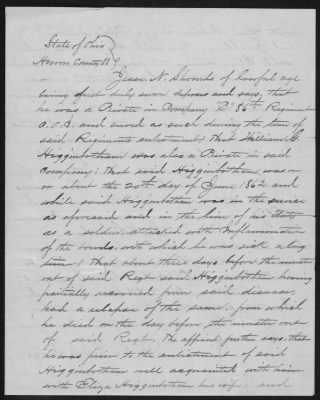 State of Ohio
Huron County SS
Jesse N. Shourds of lawful age
being first duly sworn deposes and says, that
he was a Private in Company "C" 86th Regiment
O.V.I. and served as such during the term of
said Regiments enlistment; that William G.
Higginbotham was also a Private in said
Company; that said Higginbotham was on
or about the 20th day of June 1862 and
while said Higginbotham was in the service
as aforesaid and in the line of his duty
as a soldier, attacked with Inflammation
of the bowels, with which he was sick a long
time; that about three days before the muster
out of said Regt said Higginbotham having
partially recovered from said disease,
had a relapse of the same, from which
he died on the day before the muster out
of said Regt. The affiant further says, that
he was prior to the enlistment of said
Higginbotham well acquainted with him
with Eliza Higginbotham his wife; and